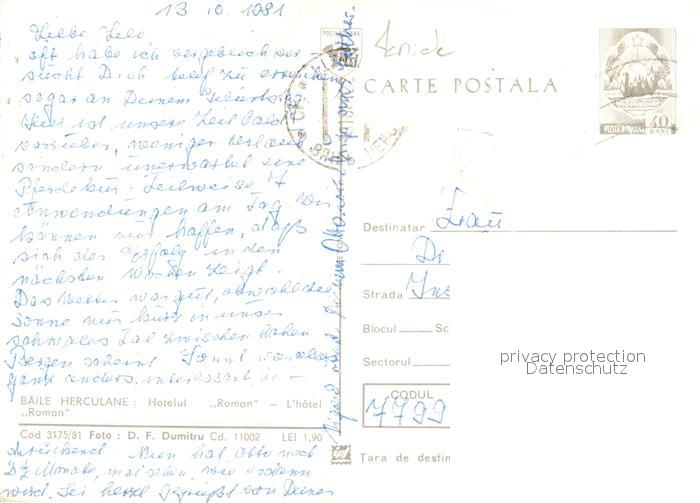 13 10. 1981
Liebe Lelo
oft habe ich vergeblich ver-
sucht Dich telef. zu erreichen
sogar an Deinem Geburtstag.
Hier ist unsere Zeit bald
vorüber, weniger Urlaub
sondern unerwartet eine
Pferdekur. Teilweise 4
Anwendungen am Tag. Wir
können nur hoffen, daß
sich der Erfolg in den
nächsten Wochen zeigt.
Das Wetter war gut, obwohl die
Sonne nur kurz in unser
schmales Tal zwischen hohen
Bergen scheint. Sonst war alles
ganz anders, interessant, be-
BĂILE HERCULANE : Hotelul „Roman" – L'hôtel
„Roman"
Cod 3175/81 Foto : D. F. Dumitru Cd. 11002 LEI 1,90
drückend. Nun hat Otto noch
2½ Monate, mal sehen, wie es dann
wird. Sei herzl. gegrüßt von Deiner
POȘTA ROMANA
LEI
CARTE POȘTALA
POSTA ROMANA 40
BANI
Destinatar Frau
Strada
Blocul Sc
Sectorul
privacy protection
Datenschutz
CODUL
7799
Țara de destin